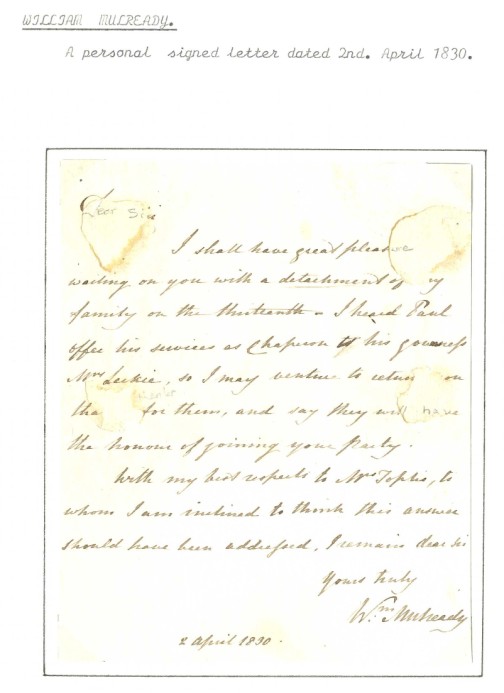 WILLIAM MULREADY.
A personal signed letter dated 2nd. April 1830.
Dear Sir
I shall have great pleasure
waiting on you with a detachment of my
family on the thirteenth - I heard Paul
offer his services as Chaperon to his governess
Mrs Leckie, so I may venture to return on
tha for them, and say they will have
the honour of joining your Party.
With my best respects to Mrs Toplis, to
whom I am inclined to think this answer
should have been addressed, I remain dear Sir
Yours truly
Wm Mulready
2 April 1830.